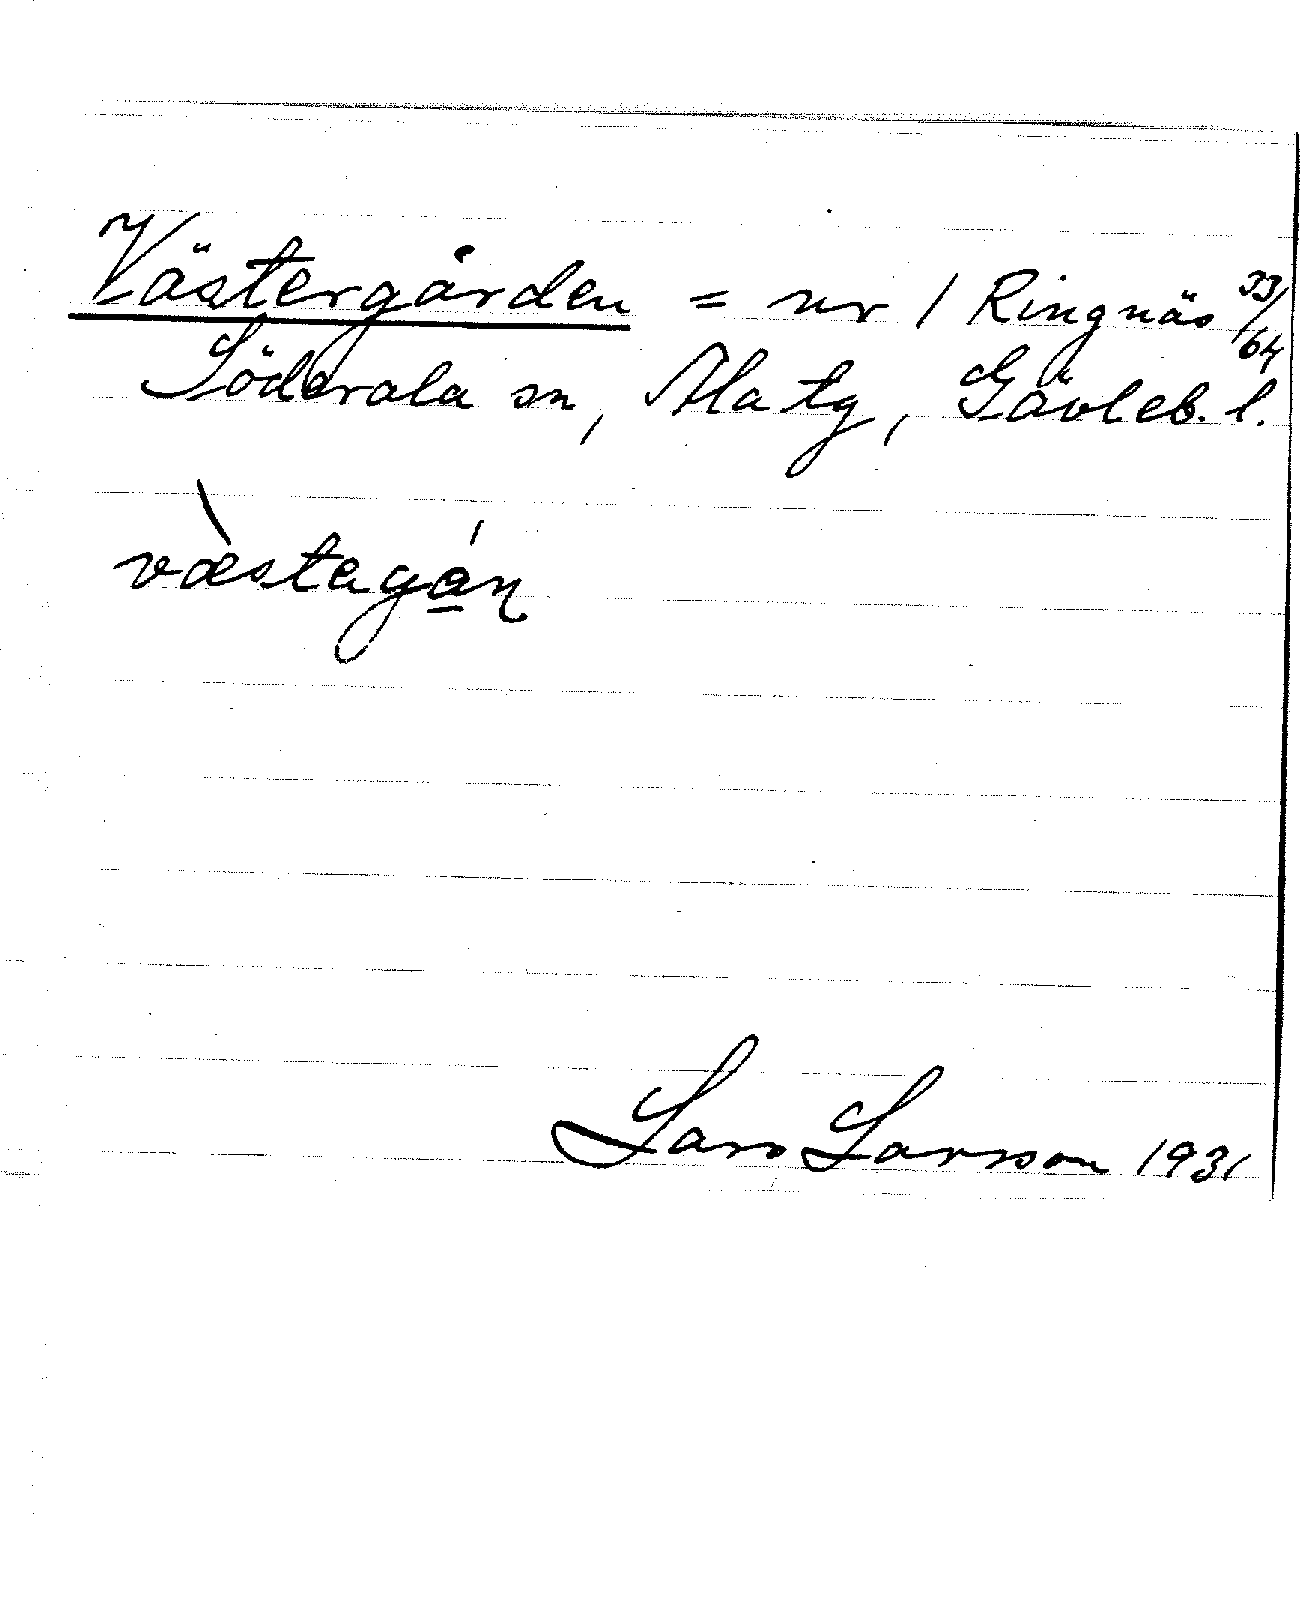 Västergården = nr 1 Ringnäs 33/64
Söderala sn, Ala tg, Gävleb. l.
væstagán
Lars Larsson 1931